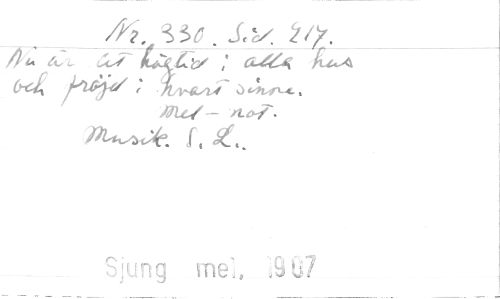 Nr. 330. Sid. 217.
Nu är det högtid i alla hus
och fröjd i hvart sinne.
Mel-not.
Musik. S. L.
Sjung mel. 1907